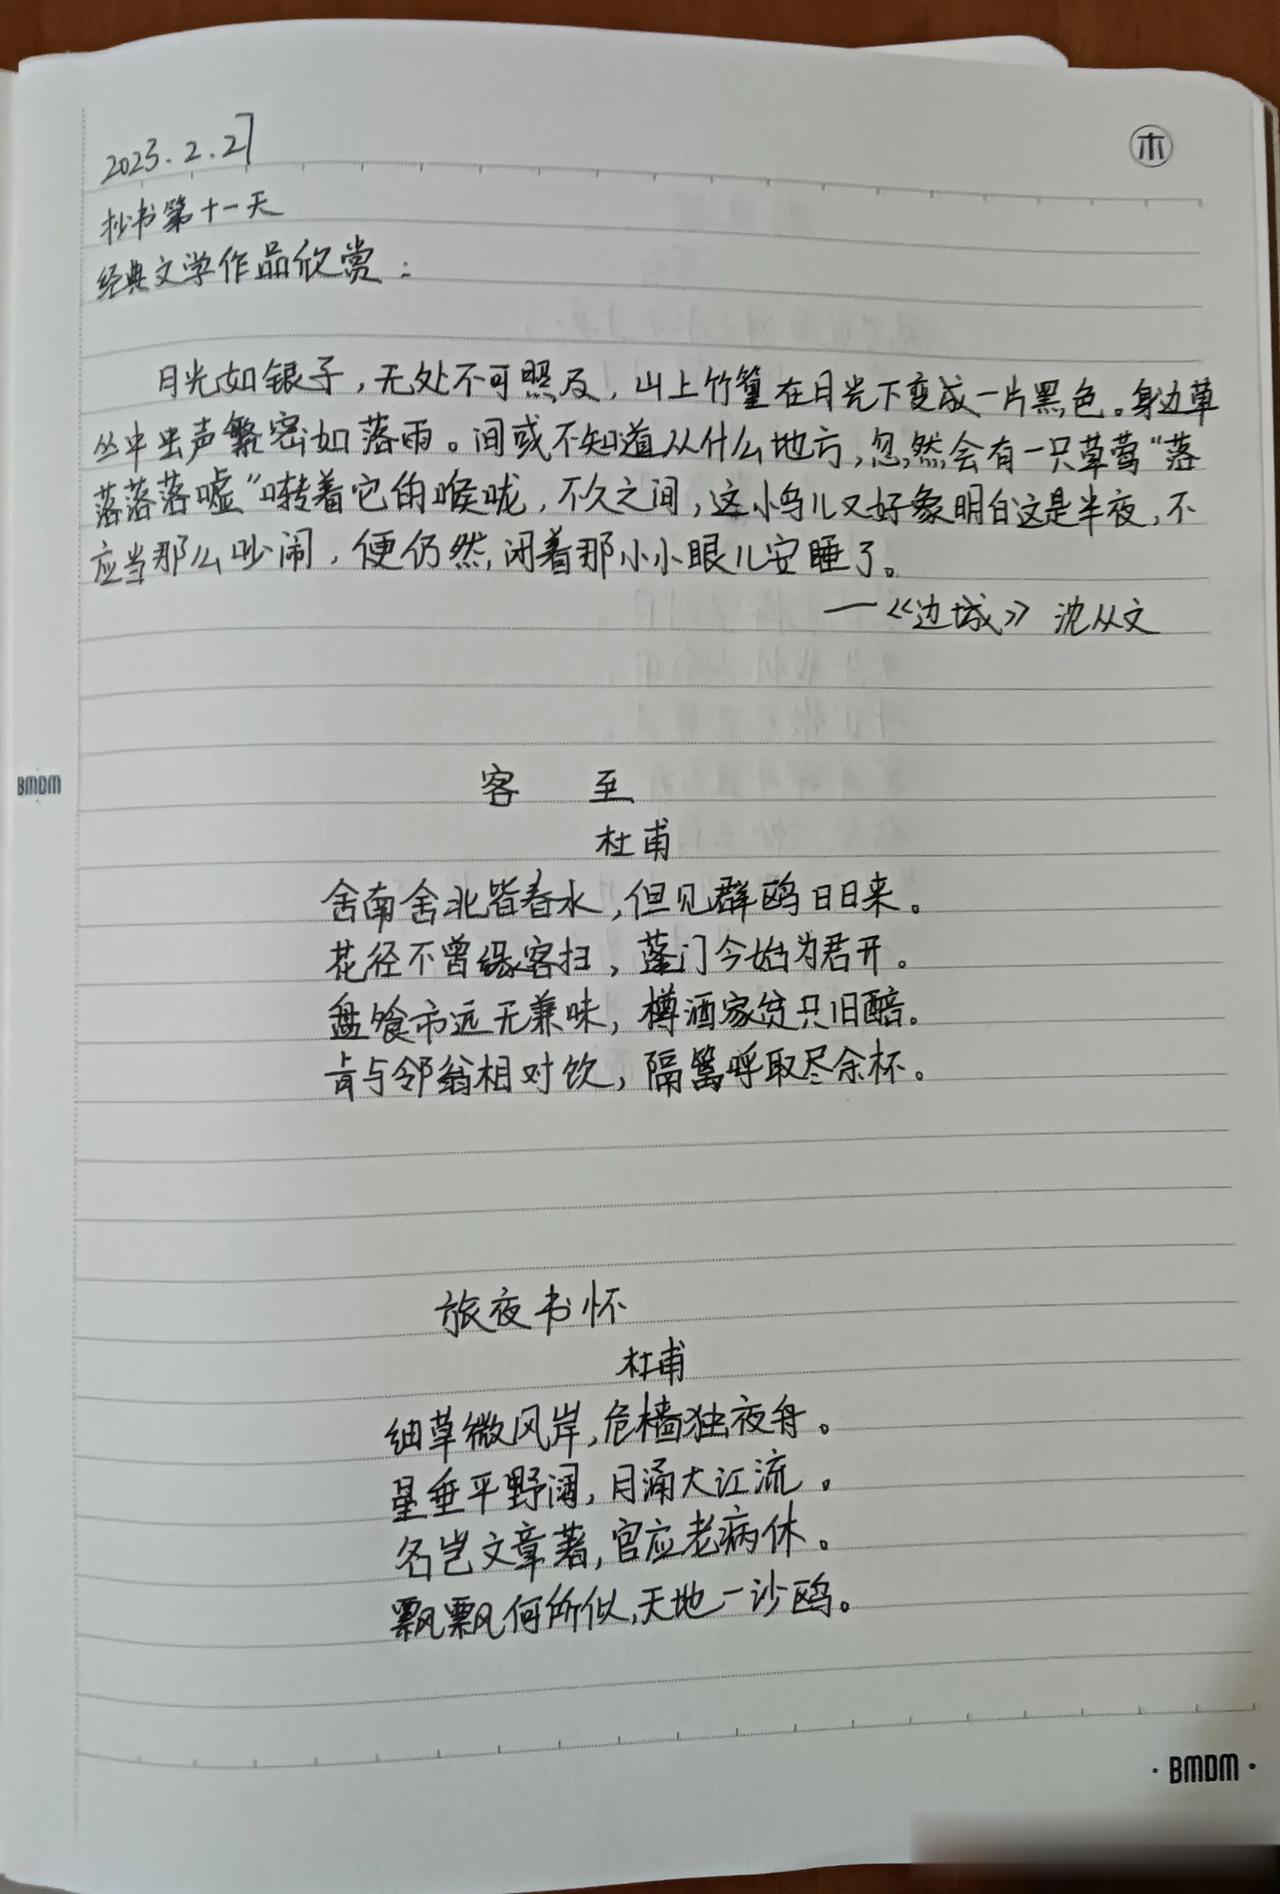 2023.2.27
木
抄书第十一天
经典文学作品欣赏：
月光如银子，无处不可照及，山上竹篁在月光下变成一片黑色。身边草
丛中虫声繁密如落雨。间或不知道从什么地方，忽然会有一只草莺“落
落落落嘘”啭着它的喉咙，不久之间，这小鸟儿又好象明白这是半夜，不
应当那么吵闹，便仍然闭着那小小眼儿安睡了。
——《边城》 沈从文
BMDM
客 至
杜甫
舍南舍北皆春水，但见群鸥日日来。
花径不曾缘客扫，蓬门今始为君开。
盘飧市远无兼味，樽酒家贫只旧醅。
肯与邻翁相对饮，隔篱呼取尽余杯。
旅夜书怀
杜甫
细草微风岸，危樯独夜舟。
星垂平野阔，月涌大江流。
名岂文章著，官应老病休。
飘飘何所似，天地一沙鸥。
·BMDM·